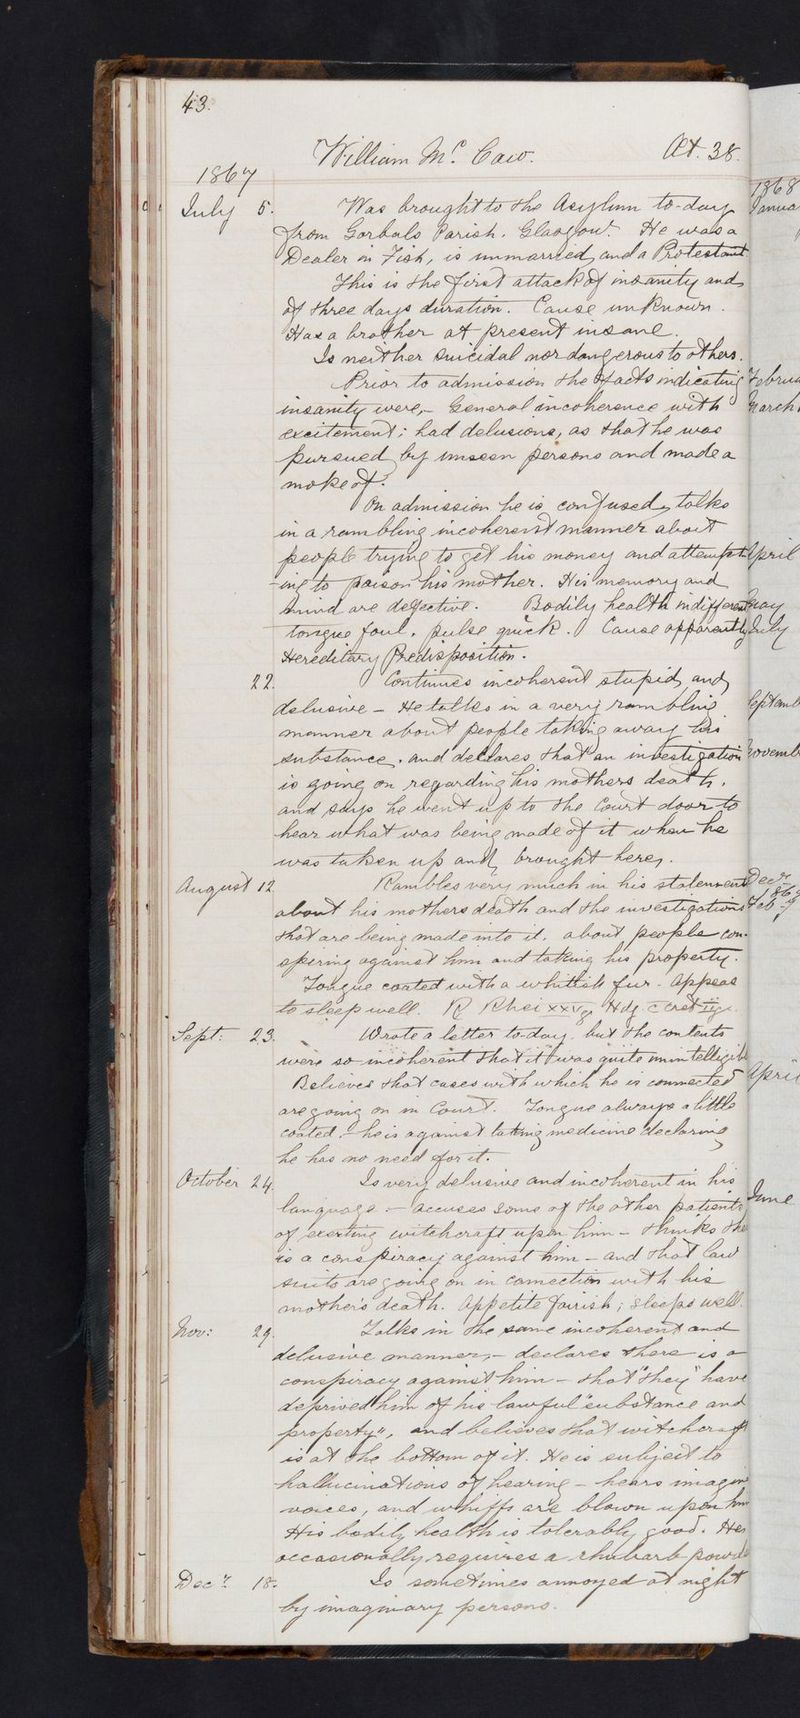 43.
William Mc. Caw. Æt. 38.
1867
July 5. Was brought to the Asylum to-day
from Gorbals Parish. Glasgow. He was a
Dealer in Fish, is unmarried, and a Protestant
This is the first attack of insanity and
of three days duration. Cause unknown.
Has a brother at present insane.
Is neither suicidal nor dangerous to others.
Prior to admission the facts indicating
insanity were,- General incoherence with
excitement; had delusions, as that he was
pursued by unseen persons and made a
moke of.
On admission he is confused, talks
in a rambling incoherent manner about
people trying to get his money and attempt-
-ing to poison his mother. His memory and
mind are defective. Bodily health indifferent
tongue foul, pulse quick. Cause apparently
Hereditary Predisposition.
22. Continues incoherent stupid, and
delusive - He talks in a very rambling
manner about people taking away his
substance, and declares that an investigation
is going on regarding his mothers death,
and says he went up to the Court door to
hear what was being made of it when he
was taken up and brought here.
August 12 Rambles very much in his statements
about his mothers death and the investigations
that are being made into it, about people con-
spiring against him and taking his property.
Tongue coated with a whitish fur. Appears
to sleep well. R Rhei xxv Hdg c cret
Sept: 23. Wrote a letter to day, but the contents
were so incoherent that it was quite unintelligible
Believes that cases with which he is connected
are going on in Court. Tongue always a little
coated - he is against taking medicine declaring
he has no need for it.
October 24. Is very delusive and incoherent in his
language - accuses some of the other patients
of exerting witchcraft upon him - thinks the
is a conspiracy against him - and that law
suits are going on in connection with his
mother's death. Appetite fairish; sleeps well.
Nov: 29. Talks in the same incoherent and
delusive manner,- declares there is a
conspiracy against him - that "they" have
deprived him of his lawful "substance and
property", and believes that witchcraft
is at the bottom of it. He is subject to
hallucinations of hearing - hears imagin
voices, and whiffs are blown upon him
His bodily health is tolerably good. He
occasionally requires a rhubarb powde
Decr. 18. Is sometimes annoyed at night
by imaginary persons.
1868
Janua
Februa
March
April
May
July
Septemb
Novemb
Decr
186
Feb
April
June